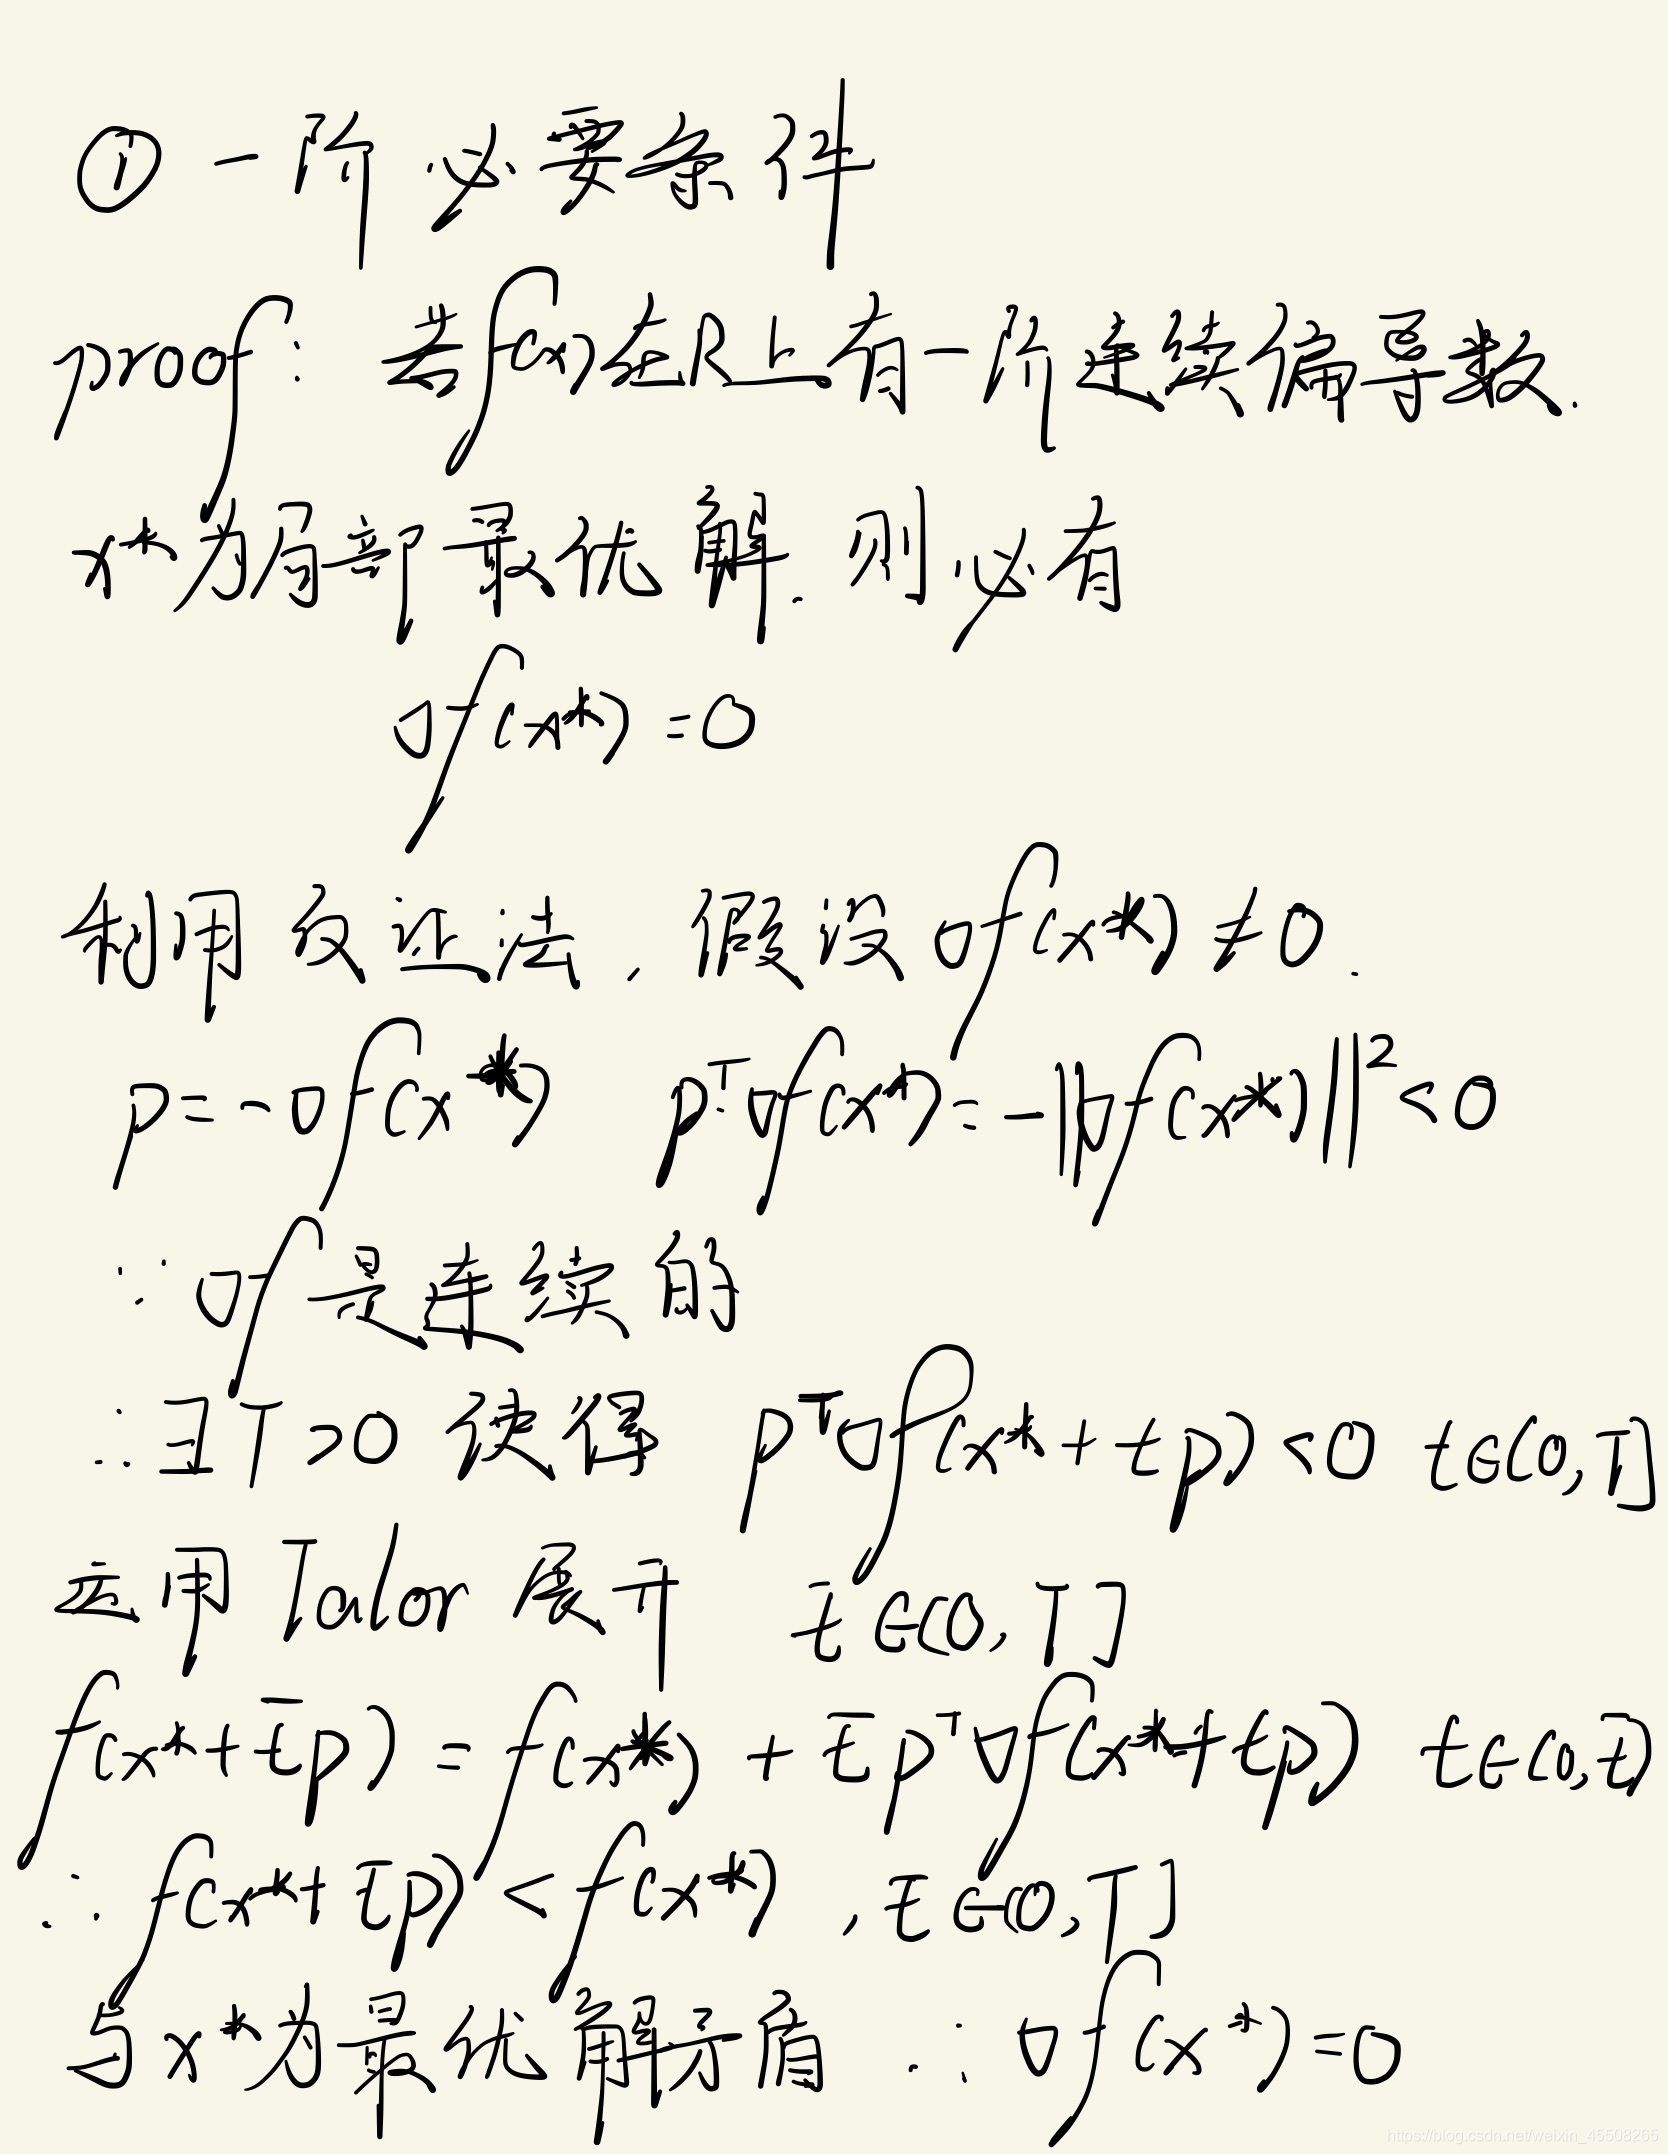 ① 一阶必要条件
proof: 若f(x)在R上有一阶连续偏导数.
x*为局部最优解. 则必有
∇f(x*)=0
利用反证法, 假设∇f(x*)≠0.
p=-∇f(x*) pᵀ∇f(x*)=-||∇f(x*)||²<0
∵ ∇f是连续的
∴ ∃T>0 使得 pᵀ∇f(x*+tp)<0 t∈(0,T]
运用Talor展开 t̄∈(0,T]
f(x*+t̄p)=f(x*)+t̄pᵀ∇f(x*+tp) t∈(0,t̄)
∴ f(x*+t̄p)<f(x*), t̄∈(0,T]
与x*为最优解矛盾 ∴ ∇f(x*)=0
https://blog.csdn.net/weixin_45508265